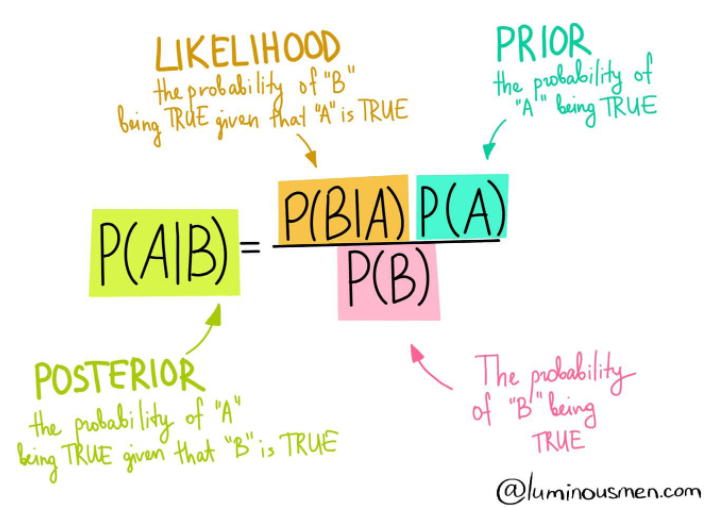 LIKELIHOOD
the probability of "B"
being TRUE given that "A" is TRUE
PRIOR
the probability of
"A" being TRUE
P(A|B) = P(B|A) P(A)
P(B)
POSTERIOR
the probability of "A"
being TRUE given that "B" is TRUE
The probability
of "B" being
TRUE
@luminousmen.com